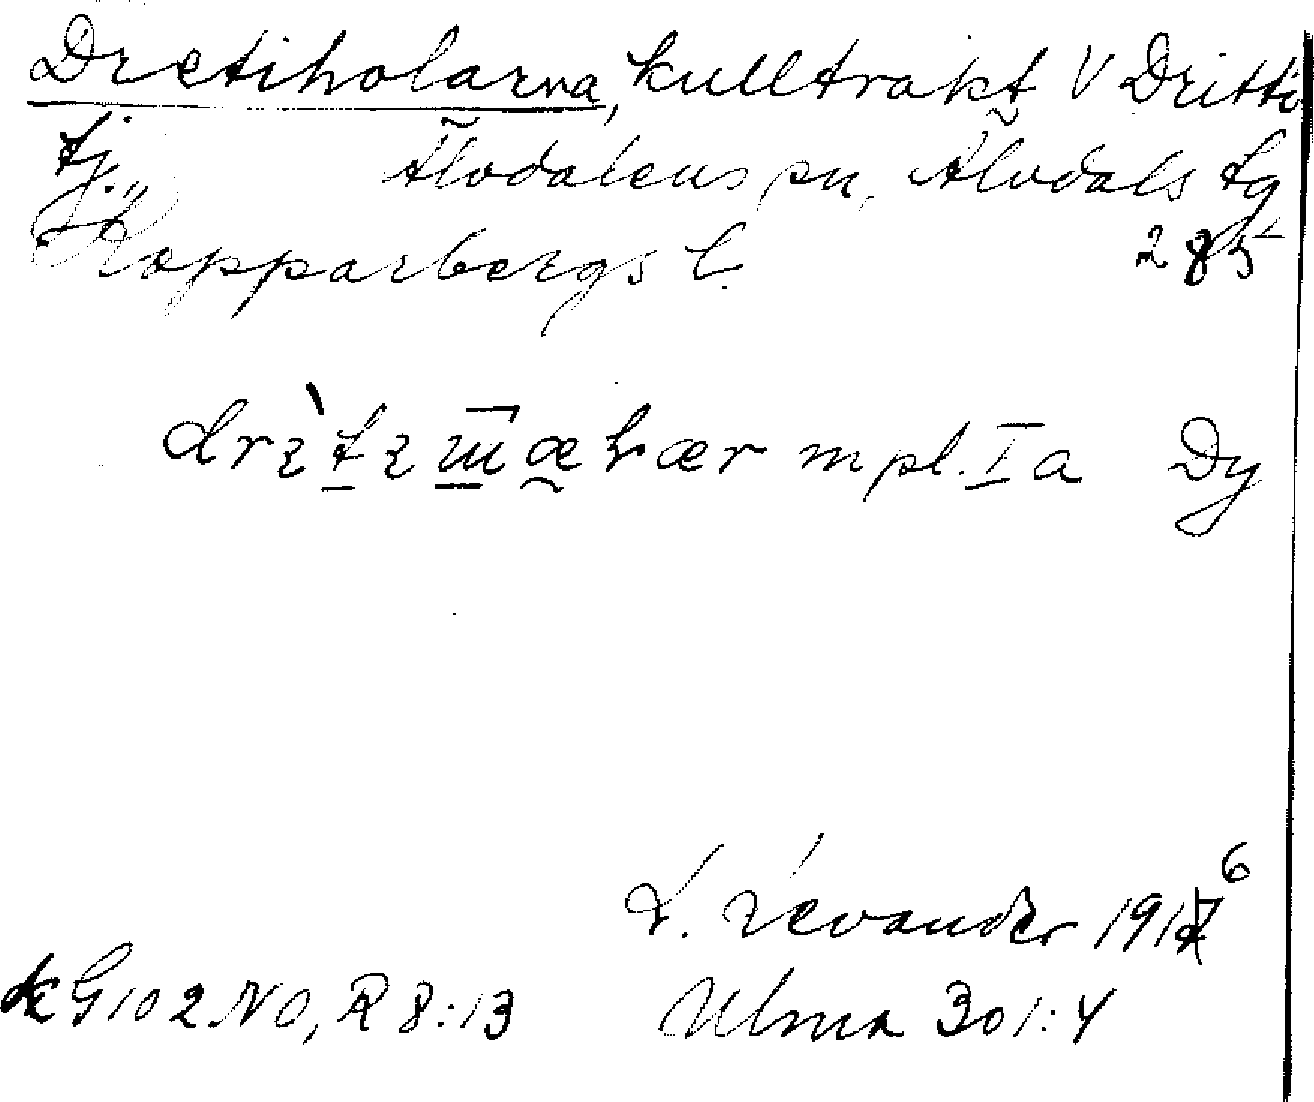 Dretiholarna, kulltrakt V Dritti
tj. Älvdalens sn, Älvdals tg
Kopparbergs l. 285
mpl. Ia Dy
L. Levander 1916
kG102 NO, R 8:13 Ulma 301:4